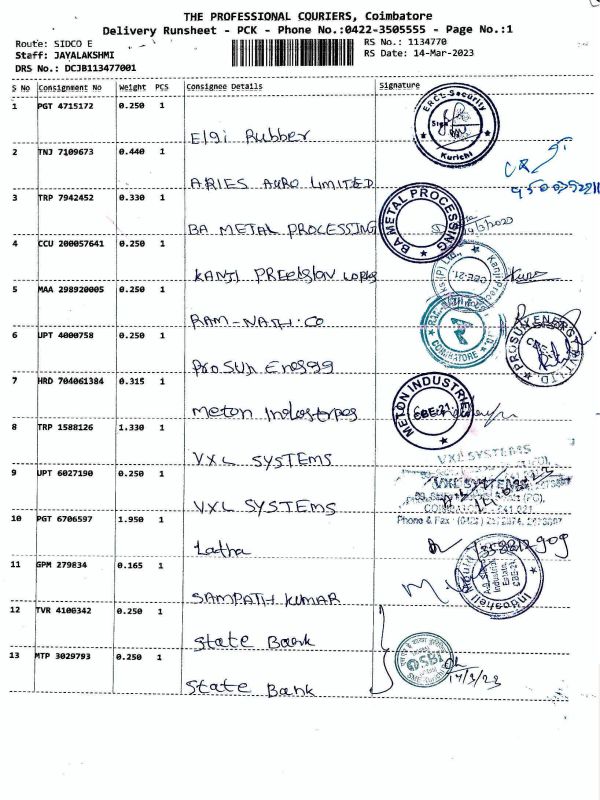 THE PROFESSIONAL COURIERS, Coimbatore
Delivery Runsheet - PCK - Phone No.:0422-3505555 - Page No.:1
Route: SIDCO E
RS No.: 1134770
Staff: JAYALAKSHMI
RS Date: 14-Mar-2023
DRS No.: DCJB113477001
S No Consignment No Weight PCS Consignee Details Signature
1 PGT 4715172 0.250 1
Elgi Rubber
ERCL-Security
Sign
Kurichi
2 TNJ 7109673 0.440 1
ARIES AURO LIMITED
3 TRP 7942452 0.330 1
BA METAL PROCESSING
BA METAL PROCESSING
4 CCU 200057641 0.250 1
KANJI PREEISION WORKS
CBE-21
5 MAA 298920005 0.250 1
RAM-NATH.CO
COIMBATORE
6 UPT 4000758 0.250 1
Pro SUN Energy
PROSUN ENERGY
7 HRD 704061384 0.315 1
Meton Industries
METON INDUSTRIES
CBE-21.
8 TRP 1588126 1.330 1
VXL SYSTEMS
VXL SYSTEMS
9 UPT 6027190 0.250 1
VXL SYSTEMS
VXL SYSTEMS
Phone & Fax
10 PGT 6706597 1.950 1
Latha
11 GPM 279834 0.165 1
SAMPATH KUMAR
Indoshell Mould
Industrial
Estate,
CBE-21
12 TVR 4100342 0.250 1
State Bank
13 MTP 3029793 0.250 1
State Bank
14/3/23